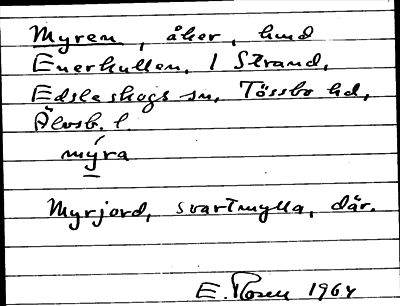 Myren, åker, hmd
Enerkullen, 1 Strand,
Edsleskogs sn, Tössbo hd,
Älvsb. l.
mýra
Myrjord, svartmylla, där.
E. Rosen 1964